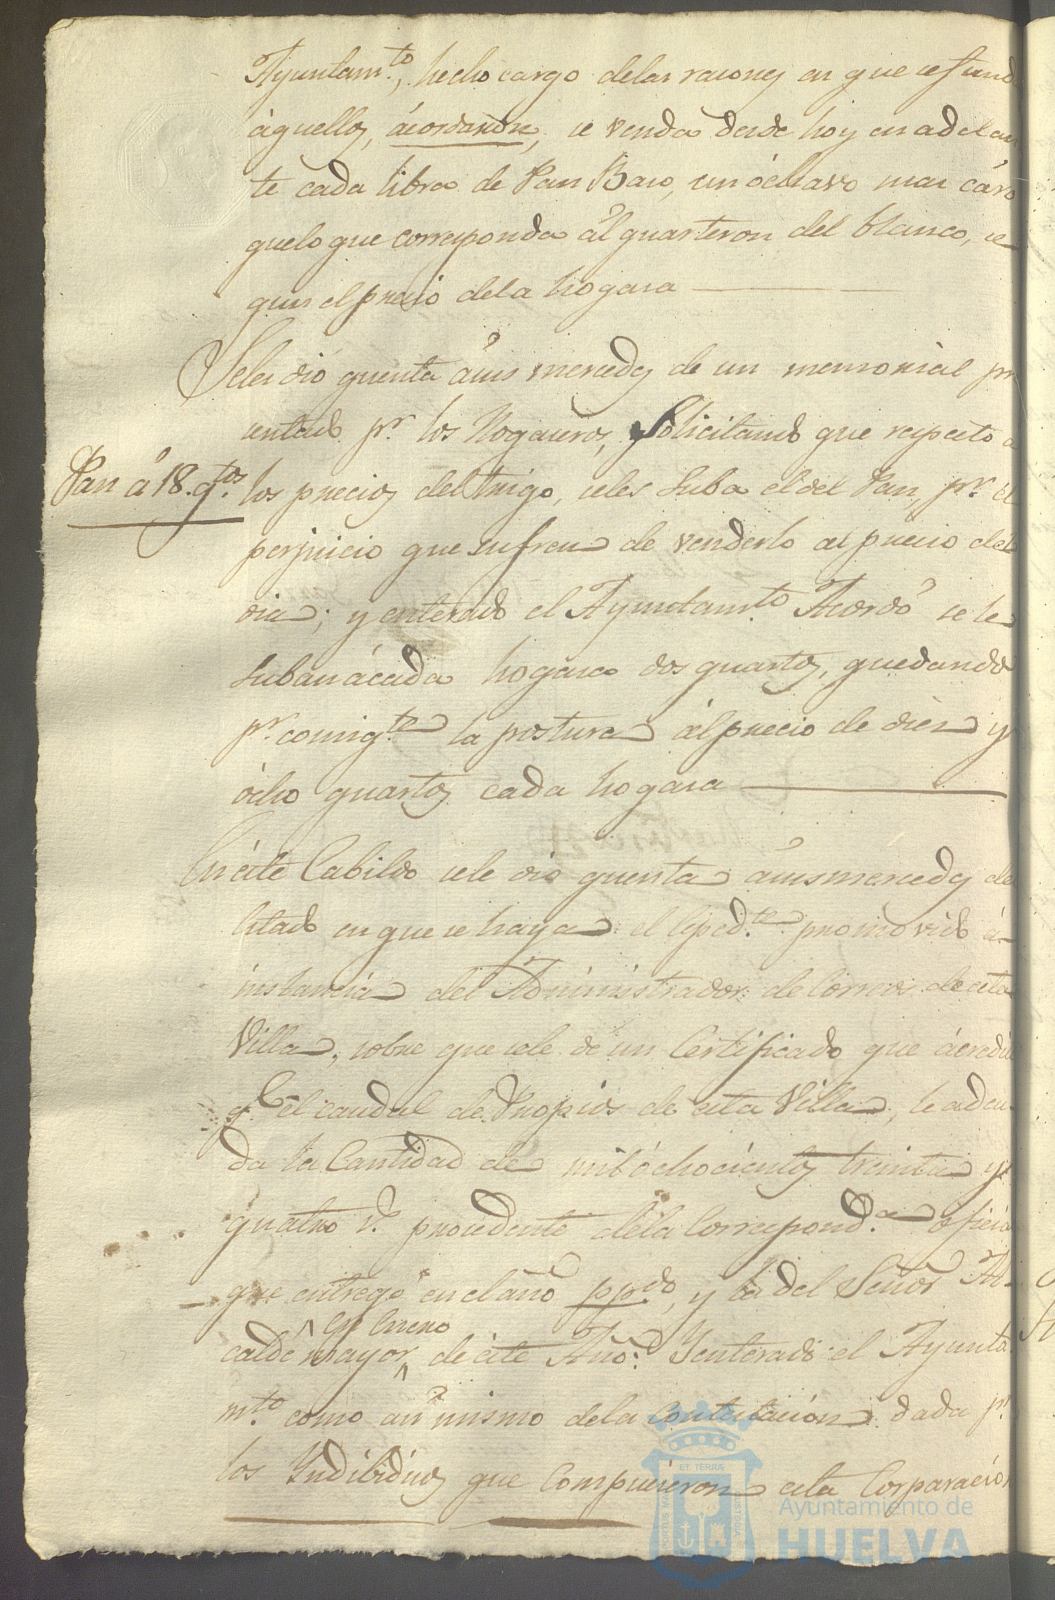 Ayuntam.to, hecho cargo delas razones en que se fund
aquellos, acordaron, se venda desde hoy en adelan
te cada libra de Pan Bazo, un óchavo mas caro
quelo que corresponda ál quarteron del blanco, se
gun el precio dela hogasa
Seles dió quenta ásus mercedes de un memorial pre
sentado pr. los Hogaceros, Solicitando que respecto a
Pan á 18. q.tos
los precios del trigo, seles suba el del Pan, pr. el
perjuicio que sufren de venderlo al precio del
dia; y enterado el Ayuntam.to Acordó se le
suban ácada hogasa dos quartos, quedando
pr. consig.te la postura álprecio de diez y
ócho quartos cada hogasa
En éste Cabildo sele dio quenta ásusmercedes del
Estado en que se haya el Exped.te promovido á
instancia del Administrador de Correos de esta
Villa, sobre que sele dé un Certificado que ácredite
q.e el caudal de Propios de esta Villa, le adeu
da la Cantidad de mil óchocientos treinta y
quatro r.s procedente dela Correspond.a oficio
que entregó en el año pp.do, y la del Señor Al
en Enero
calde mayor, de éste Año: Yenterado el Ayunta
m.to como asi mismo dela contestación dada pr.
los Yndibiduos que Compusieron esta Corparación
ET TERRÆ
Ayuntamiento de
HUELVA